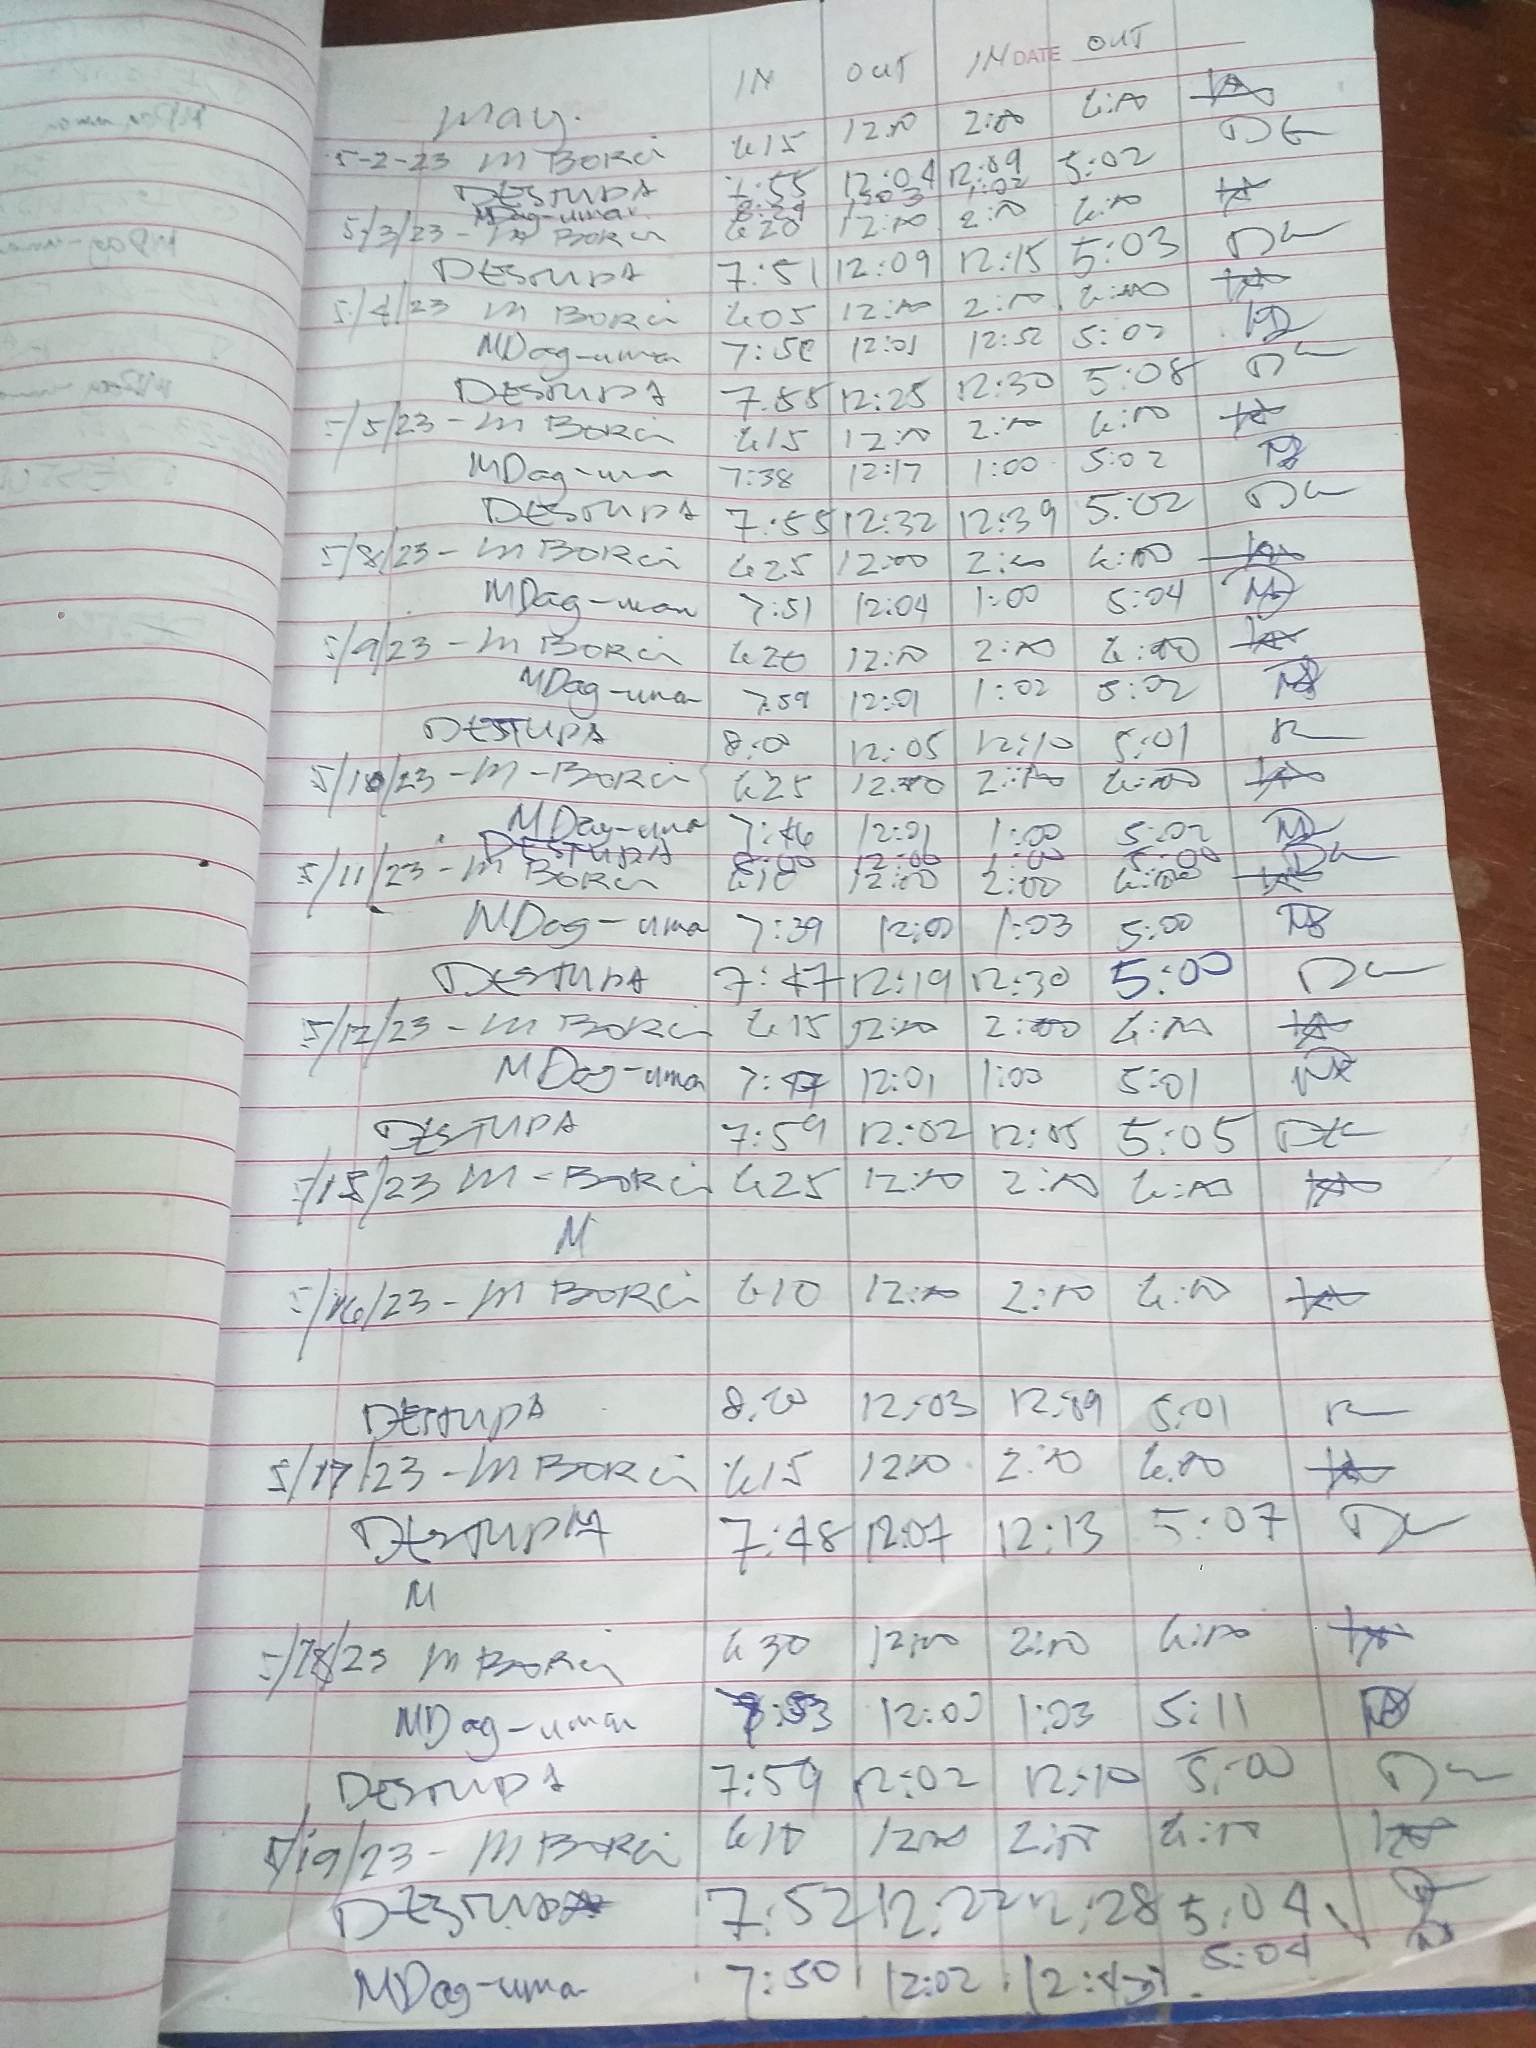 IN OUT IN DATE OUT
May.
5-2-23 M Borci 6:15 12:00 2:00 6:00
DESTUPA 7:55 12:04 12:09 5:02
MDag-uman 8:29 1:02
5/3/23 - M Borci 6:20 12:00 2:00 6:00
DESTUPA 7:51 12:09 12:15 5:03
5/4/23 M Borci 6:05 12:00 2:00 6:00
MDag-uma 12:01 12:52 5:02
DESTUPA 7:55 12:25 12:30 5:08
5/5/23 - M Borci 6:15 12:00 2:00 6:00
MDag-uma 7:38 12:17 1:00 5:02
DESTUPA 7:55 12:32 12:39 5:02
5/8/23 - M Borci 6:25 12:00 2:00 6:00
MDag-uman 7:51 12:04 1:00 5:04
5/9/23 - M Borci 6:20 12:00 2:00 6:00
MDag-uman 7:59 12:01 1:02 5:02
DESTUPA 8:00 12:05 12:10 5:01
5/10/23 - M - Borci 6:25 12:00 2:00 6:00
MDag-uma 7:46 12:01 1:00 5:02
DESTUPA 8:00 12:00 1:00 5:00
5/11/23 - M Borci 6:10 12:00 2:00 6:00
MDag-uma 7:39 12:00 1:03 5:00
DESTUPA 7:47 12:19 12:30 5:00
5/12/23 - M Borci 6:15 12:00 2:00 6:00
MDag-uma 7:47 12:01 1:00 5:01
DESTUPA 7:59 12:02 12:05 5:05
5/15/23 M - Borci 6:25 12:00 2:00 6:00
M
5/16/23 - M Borci 6:10 12:00 2:00 6:00
DESTUPA 12:03 12:09 5:01
5/17/23 - M Borci 6:15 12:00 2:00 6:00
DESTUPA 7:48 12:07 12:13 5:07
M
5/18/23 M Borci 6:30 12:00 2:00 6:00
MDag-uman 7:53 12:00 1:03 5:11
DESTUPA 7:59 12:02 12:10 5:00
5/19/23 - M Borci 6:10 12:00 2:00 6:00
DESTUPA 7:52 12:22 12:28 5:04
MDag-uma 7:50 12:02 5:04